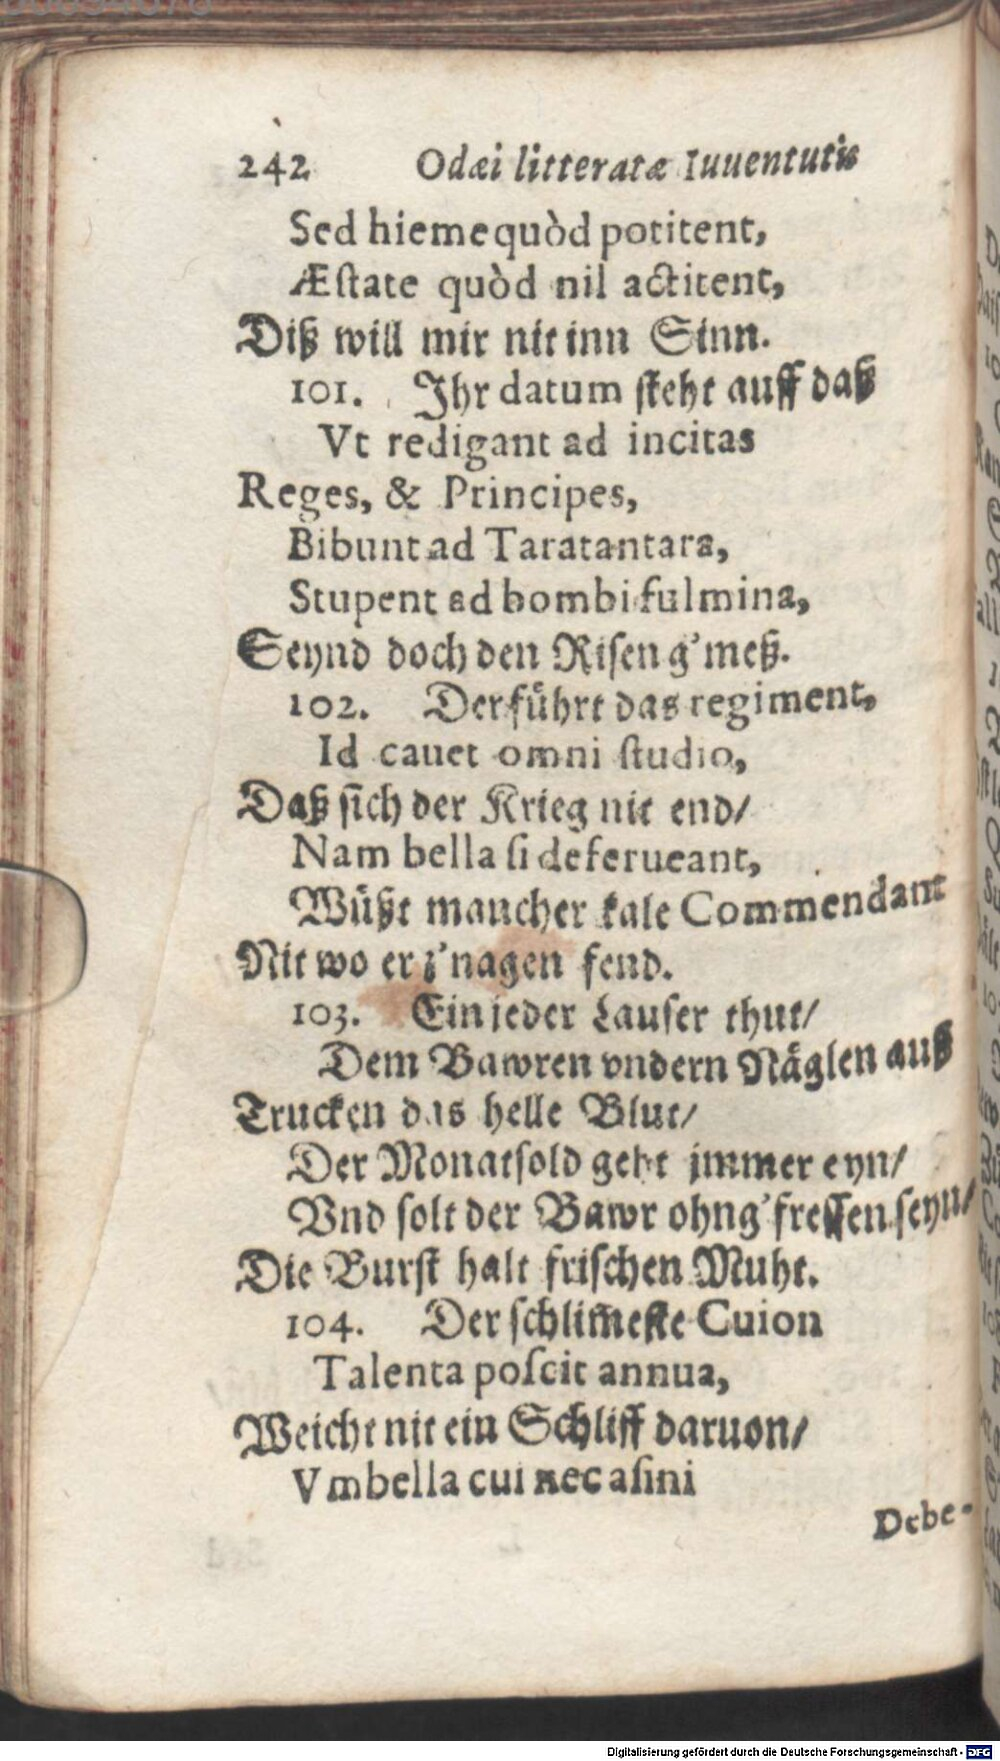 242 Odæi litteratæ Iuuentutis
Sed hieme quòd potitent,
Æſtate quòd nil actitent,
Diß will mir nit inn Sinn.
101. Ihr datum ſteht auff daß
Vt redigant ad incitas
Reges, & Principes,
Bibunt ad Taratantara,
Stupent ad bombi fulmina,
Seynd doch den Riſen g'meß.
102. Der führt das regiment,
Id cauet omni ſtudio,
Daß ſich der Krieg nit end/
Nam bella ſi deferueant,
Wüßt mancher kale Commendant
Nit wo er z'nagen fend.
103. Ein jeder Lauſer thut/
Dem Bawren vndern Näglen auß
Trucken das helle Blut/
Der Monatſold geht jmmer eyn/
Vnd ſolt der Bawr ohng'freſſen ſeyn/
Die Burſt halt friſchen Muht.
104. Der ſchlim̄eſte Cuion
Talenta poſcit annua,
Weicht nit ein Schliff daruon/
Vmbella cui nec aſini
Debe-
Digitalisierung gefördert durch die Deutsche Forschungsgemeinschaft - DFG